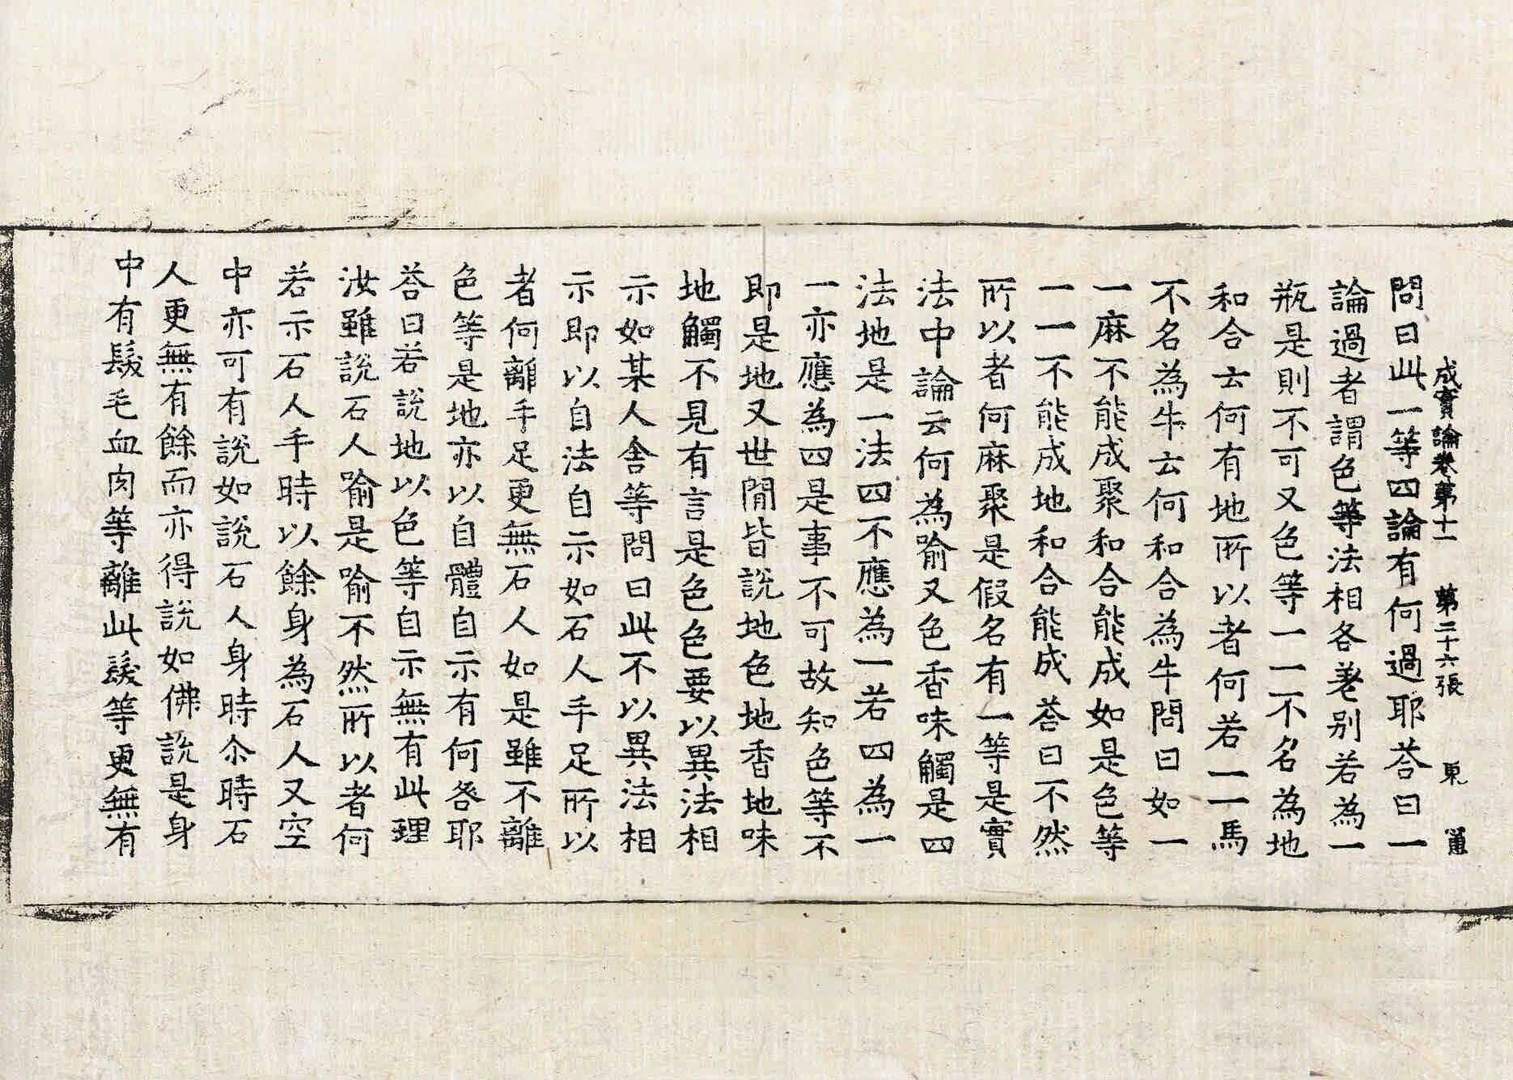 成實論卷第十一 第二十六張 東
問曰此一等四論有何過耶荅曰一
論過者謂色等法相各差别若為一
瓶是則不可又色等一一不名為地
和合云何有地所以者何若一一馬
不名為牛云何和合為牛問曰如一
一麻不能成聚和合能成如是色等
一一不能成地和合能成荅曰不然
所以者何麻聚是假名有一等是實
法中論云何為喻又色香味觸是四
法地是一法四不應為一若四為一
一亦應為四是事不可故知色等不
即是地又世間皆說地色地香地味
地觸不見有言是色色要以異法相
示如某人舍等問曰此不以異法相
示即以自法自示如石人手足所以
者何離手足更無石人如是雖不離
色等是地亦以自體自示有何咎耶
荅曰若說地以色等自示無有此理
汝雖說石人喻是喻不然所以者何
若示石人手時以餘身為石人又空
中亦可有說如說石人身時尒時石
人更無有餘而亦得說如佛說是身
中有髮毛血肉等離此髮等更無有